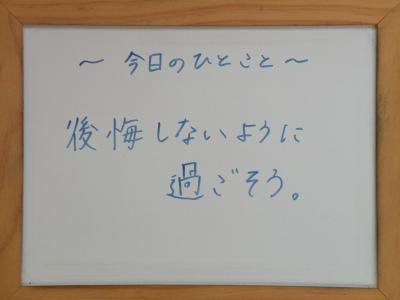 ～ 今日のひとこと ～
後悔しないように
過ごそう。